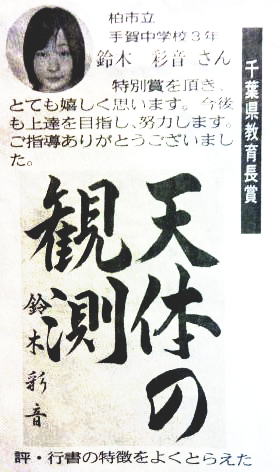 柏市立
手賀中学校3年
鈴木 彩音 さん
特別賞を頂き、
とても嬉しく思います。今後
も上達を目指し、努力します。
ご指導ありがとうございまし
た。
千葉県教育長賞
天体の
観測
鈴木彩音
評・行書の特徴をよくとらえた